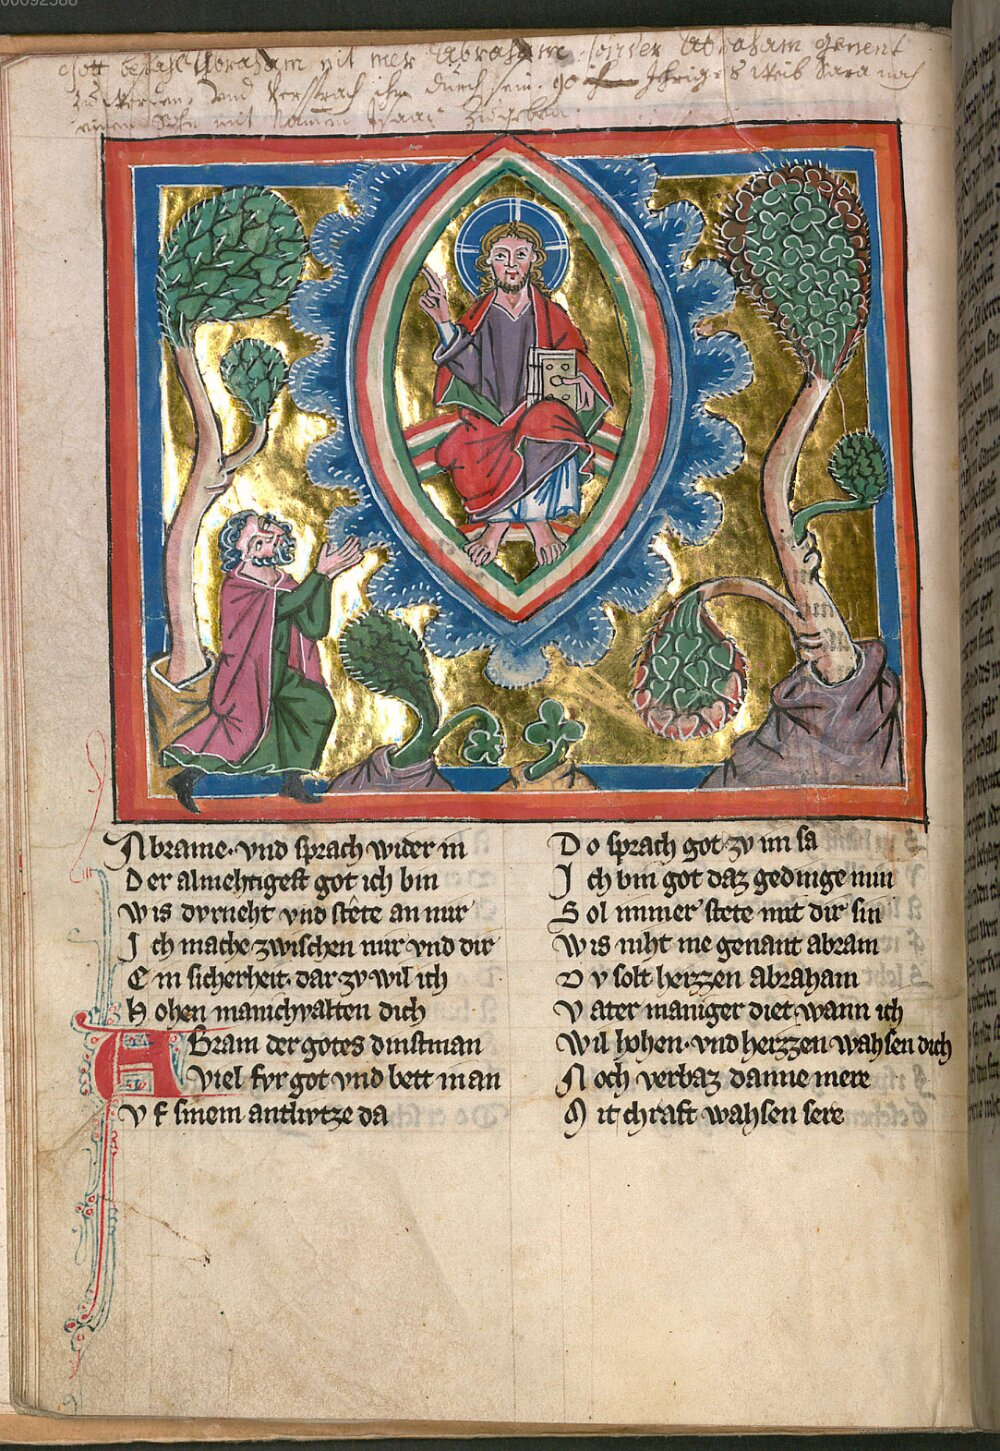 00092588
Gott befahl Abraham nit mer Abraham sonder Abraham genent
zu werden, Vnd Versprach ihm durch sein 90 Jehriges Weib Sara noch
einen Sohn mit Namen Isaac Zugeben.
Abrame· vnd sprach wider in
Der almehtigest got ich bin
Wis dvrneht vnd stête an mir
Ich mache zwischen mir vnd dir
Ein sicherheit· dar zv wil ich
Hohen manichvalten dich
Abram der gotes dinstman
Viel fvr got vnd bett in an
Vf sinem antlvtze da
Do sprach got zv im sa
Ich bin got daz gedinge min
Sol immer stete mit dir sin
Wis niht me genant abram
Dv solt heizzen abraham
Vater maniger diet· wann ich
Wil hohen· vnd heizzen wahsen dich
Noch verbaz danne mere
Mit chraft wahsen sere